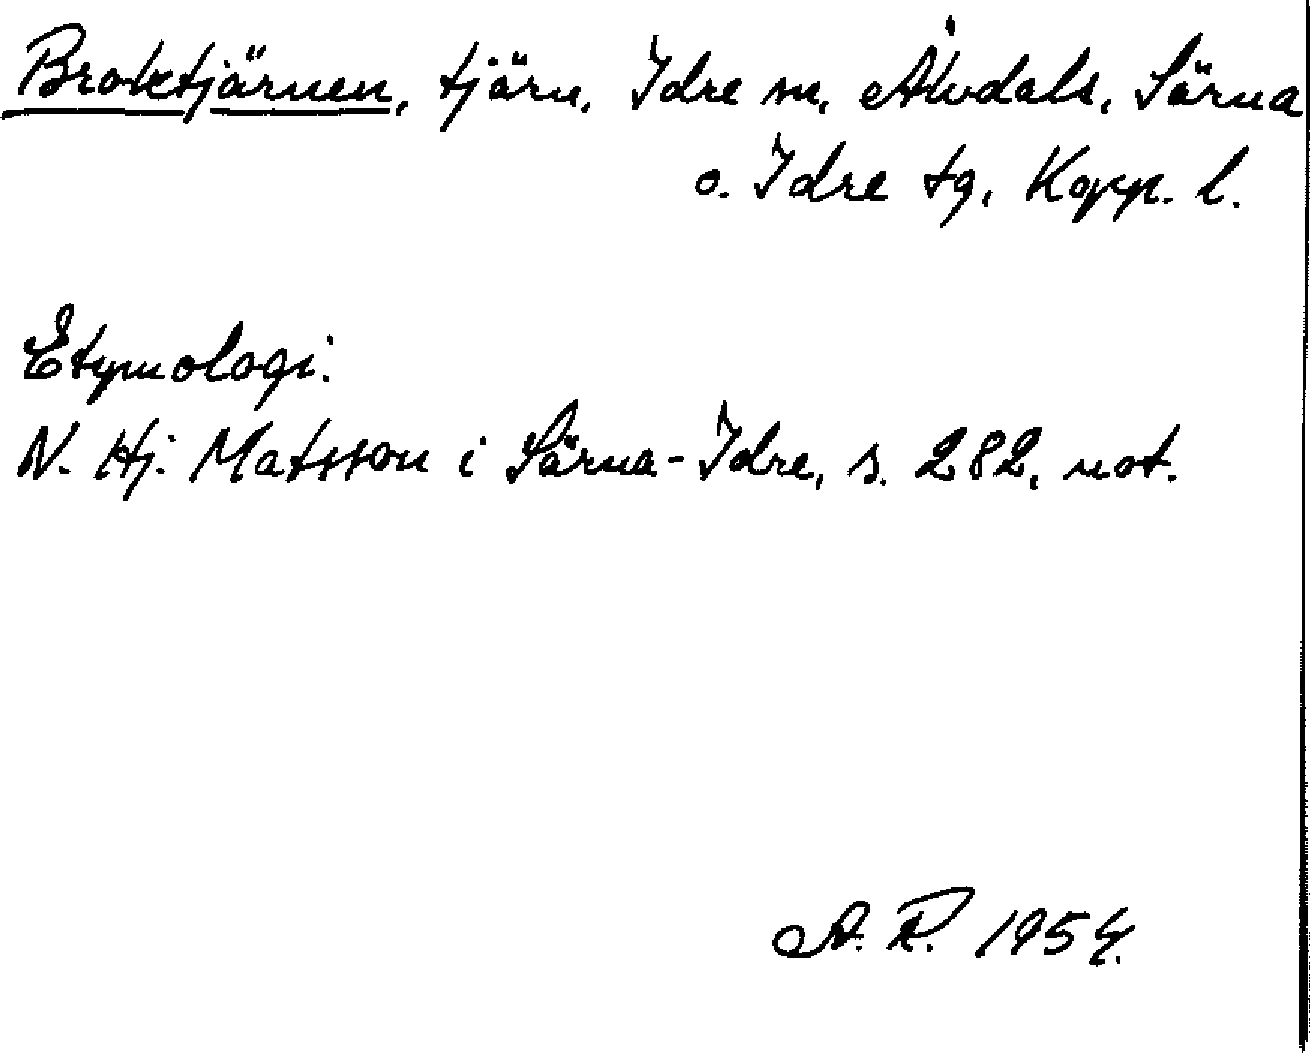 Broktjärnen, tjärn, Idre sn, Älvdals, Särna
o. Idre tg, Kopp. l.
Etymologi:
N. Hj. Matsson i Särna-Idre, s. 282, not.
A. R. 1954.